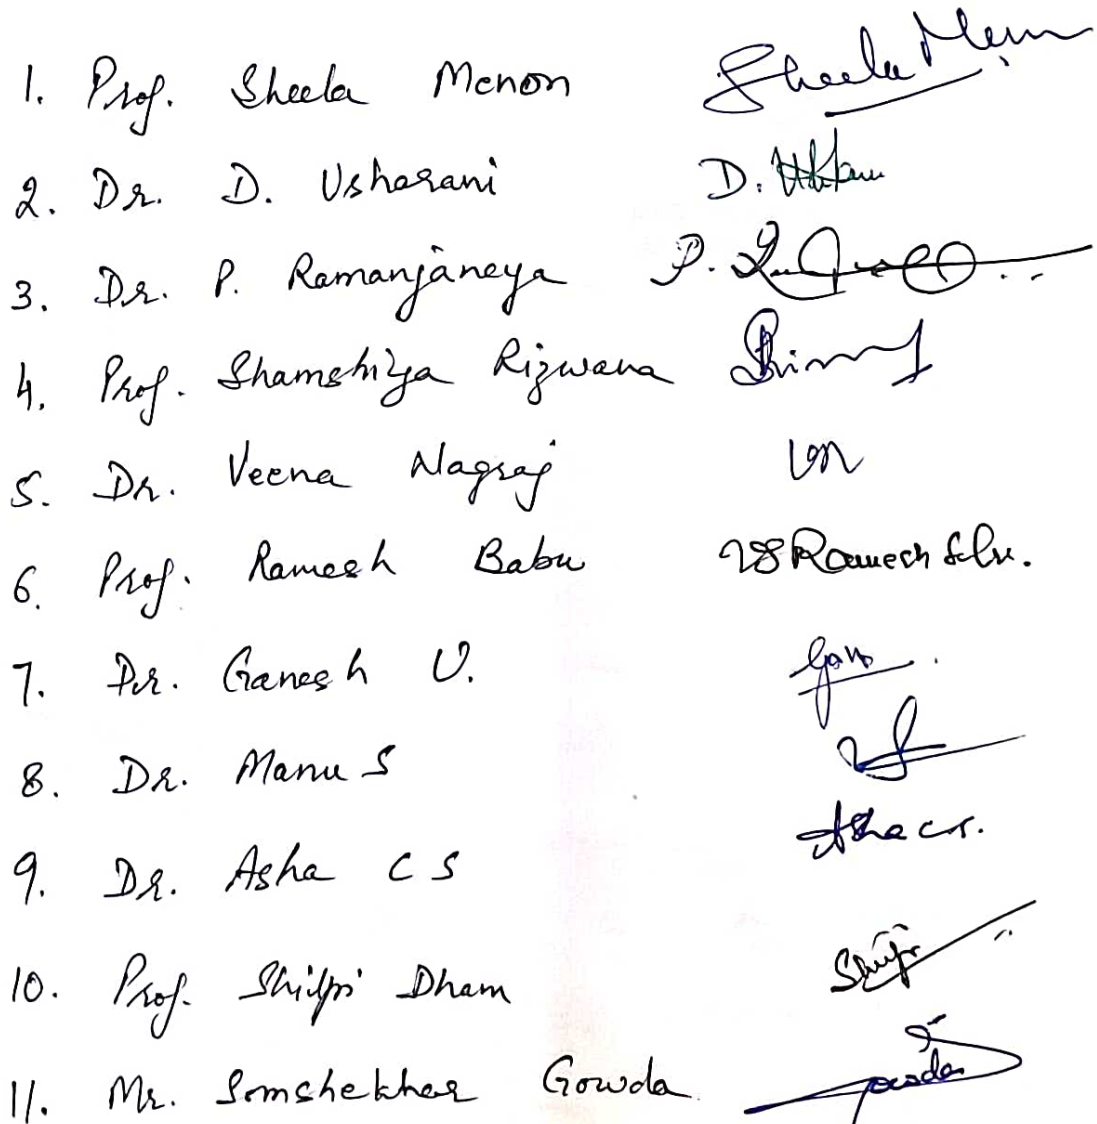 1. Prof. Sheela Menon Sheela Menon
2. Dr. D. Usharani D.
3. Dr. P. Ramanjaneya P.
4. Prof. Shamshiya Rizwana
5. Dr. Veena Nagraj VN
6. Prof. Ramesh Babu Ramesh
7. Dr. Ganesh V.
8. Dr. Manu S
9. Dr. Asha C S Asha C.S.
10. Prof. Shilpi Dham Shilpi
11. Mr. Somshekhar Gowda Gowda